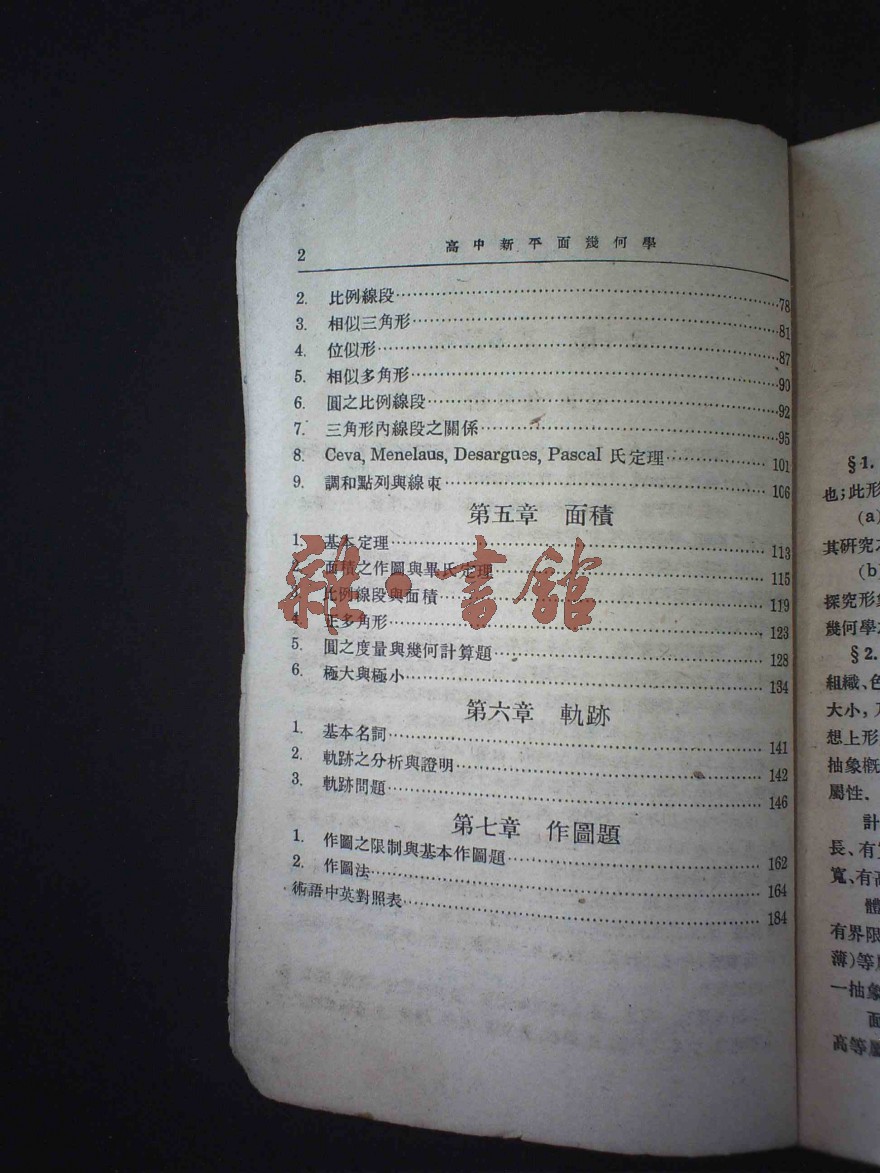 2 高中新平面幾何學
2. 比例線段……78
3. 相似三角形……81
4. 位似形……87
5. 相似多角形……90
6. 圓之比例線段……92
7. 三角形內線段之關係……95
8. Ceva, Menelaus, Desargues, Pascal 氏定理……101
9. 調和點列與線束……106
第五章 面積
1. 基本定理……113
2. 面積之作圖與畢氏定理……115
3. 比例線段與面積……119
4. 正多角形……123
5. 圓之度量與幾何計算題……128
6. 極大與極小……134
第六章 軌跡
1. 基本名詞……141
2. 軌跡之分析與證明……142
3. 軌跡問題……146
第七章 作圖題
1. 作圖之限制與基本作圖題……162
2. 作圖法……164
術語中英對照表……184
雜·書館
§1.
也;此形
(a)
其研究
(b)
探究形
幾何學
§2.
組織、色
大小,
想上形
抽象概
屬性.
計
長、有
寬、有高
體
有界限
薄)等
一抽象
面
高等